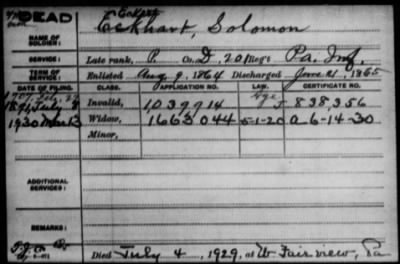 DEAD
Eckert
NAME OF SOLDIER:
Eckhart, Solomon
SERVICE:
Late rank, P. Co. D, 201 Reg't Pa. Inf.
TERM OF SERVICE:
Enlisted Aug 9, 1864 Discharged June 21, 1865
DATE OF FILING. CLASS. APPLICATION NO. LAW. CERTIFICATE NO.
1891 July Invalid, 1039914 Age 838,356
1930 Mar 13 Widow, 1663044 5-1-20 A 6-14-30
Minor,
ADDITIONAL SERVICES:
REMARKS:
Died July 4, 1929, at W Fairview, Pa